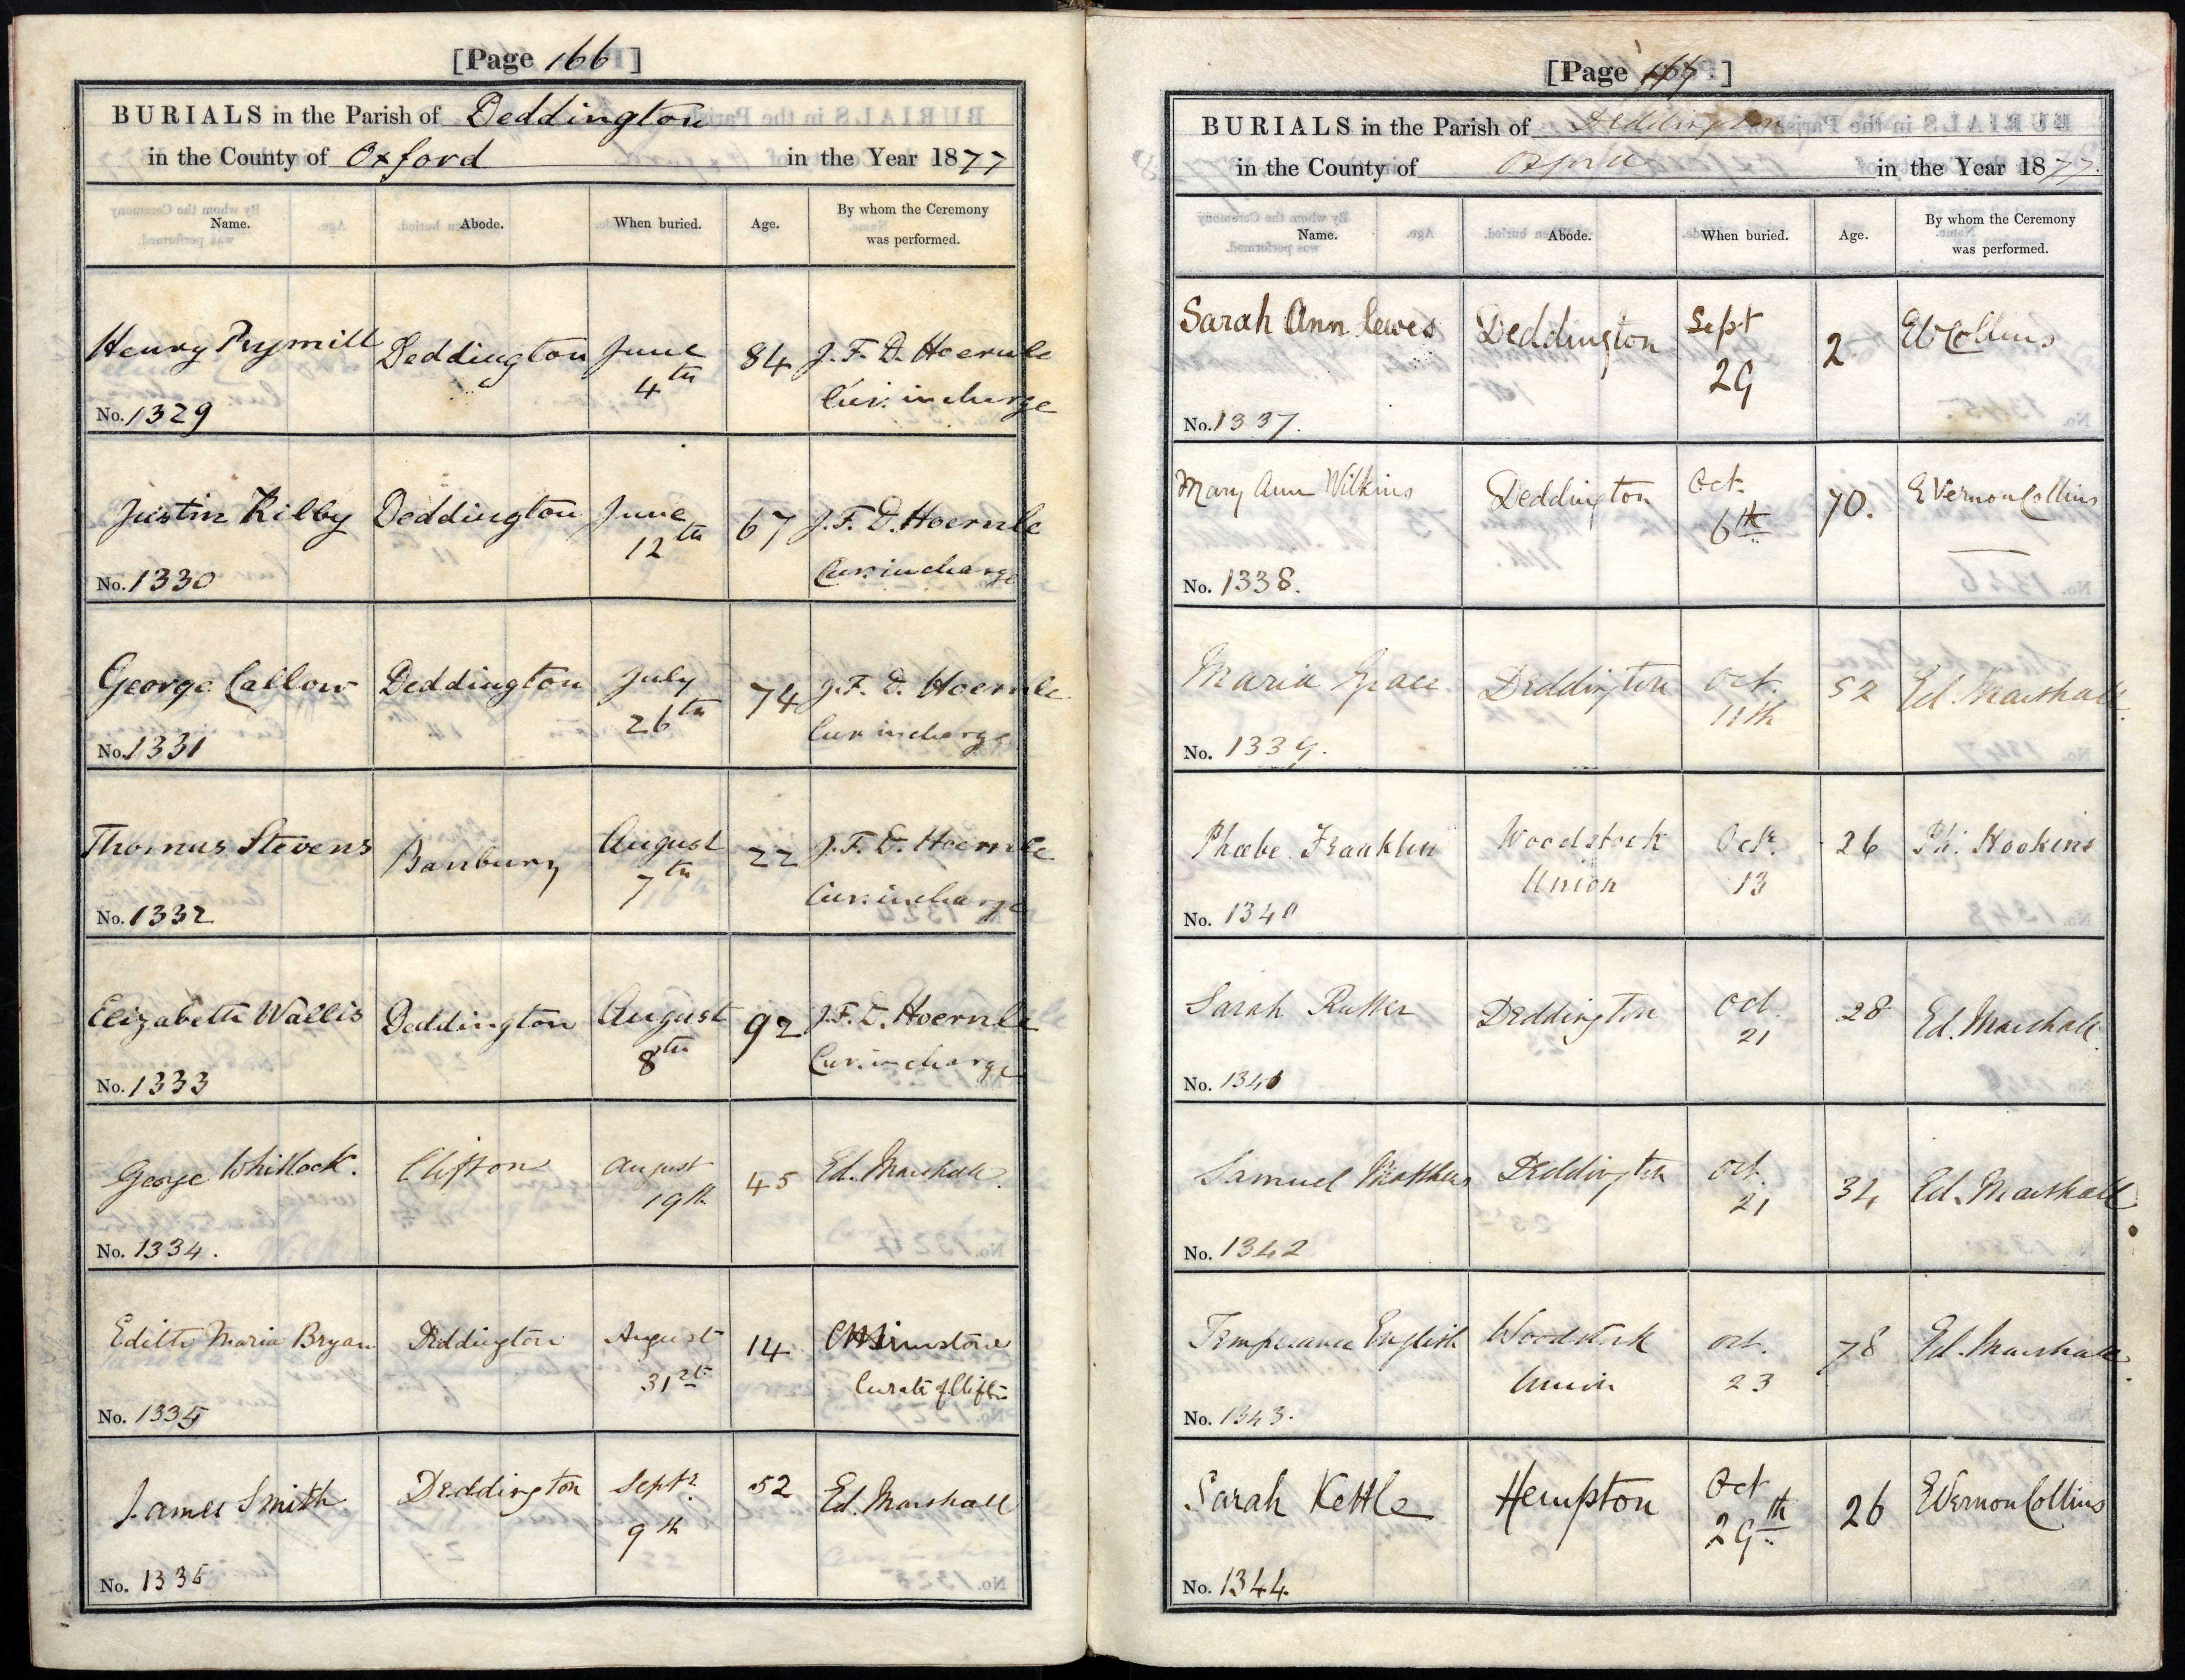 [Page 166]
BURIALS in the Parish of Deddington
in the County of Oxford in the Year 1877
Name. Abode. When buried. Age. By whom the Ceremony was performed.
Henry Pymill Deddington June 84 J. F. D. Hoernle
4th Cur. in charge
No. 1329
Justin Kilby Deddington June 67 J. F. D. Hoernle
12th Cur. in charge
No. 1330
George Callow Deddington July 74 J. F. D. Hoernle
26th Cur. in charge
No. 1331
Thomas Stevens Banbury August 22 J. F. D. Hoernle
7th Cur. in charge
No. 1332
Elizabeth Wallis Deddington August 92 J. F. D. Hoernle
8th Cur. in charge
No. 1333
George Whitlock. Clifton August 45 Ed. Marshall.
19th
No. 1334.
Edith Maria Bryan Deddington August 14
31st Curate of Clifton
No. 1335
James Smith Deddington Septr. 52 Ed. Marshall
9th
No. 1336
[Page 167]
BURIALS in the Parish of Deddington
in the County of Oxford in the Year 1877.
Name. Abode. When buried. Age. By whom the Ceremony was performed.
Sarah Ann Lewes Deddington Sept 2 EVCollins
29
No. 1337.
Mary Ann Wilkins Deddington Oct. 70. E Vernon Collins
6th
No. 1338.
Maria Grace Deddington Oct. 52 Ed. Marshall.
11th
No. 1339.
Phœbe Franklin Woodstock Octr. 26 Hookins
Union 13
No. 1340
Sarah Rutter Deddington Oct. 28 Ed. Marshall.
21
No. 1341
Samuel Matthews Deddington Oct. 34 Ed. Marshall
21
No. 1342
Temperance English Woodstock Oct. 78 Ed. Marshall.
Union 23
No. 1343.
Sarah Kettle Hempton Oct 26 EVernon Collins
29th
No. 1344.